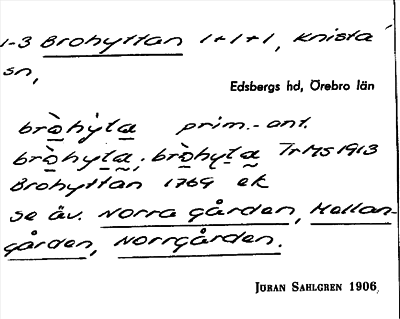 1-3 Brohyttan 1+1+1, Knista
sn,
Edsbergs hd, Örebro län
bròhỳta prim.-ant.
bròhyta, bròhyta TrMS1913
Brohyttan 1769 ek
se äv. Norra gården, Mellan-
gården, Norrgården.
JÖRAN SAHLGREN 1906